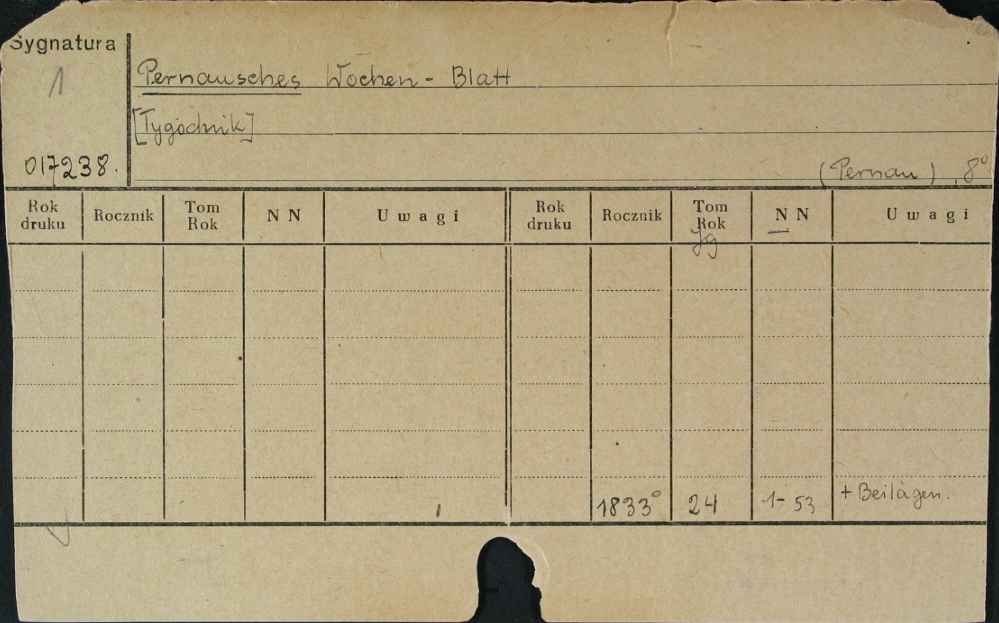 Sygnatura
1
Pernausches Wochen-Blatt
[Tygodnik]
017238.
(Pernau), 8°
Rok druku Rocznik Tom Rok NN Uwagi Rok druku Rocznik Tom Rok NN Uwagi
Jg
1833° 24 1-53 + Beilagen.